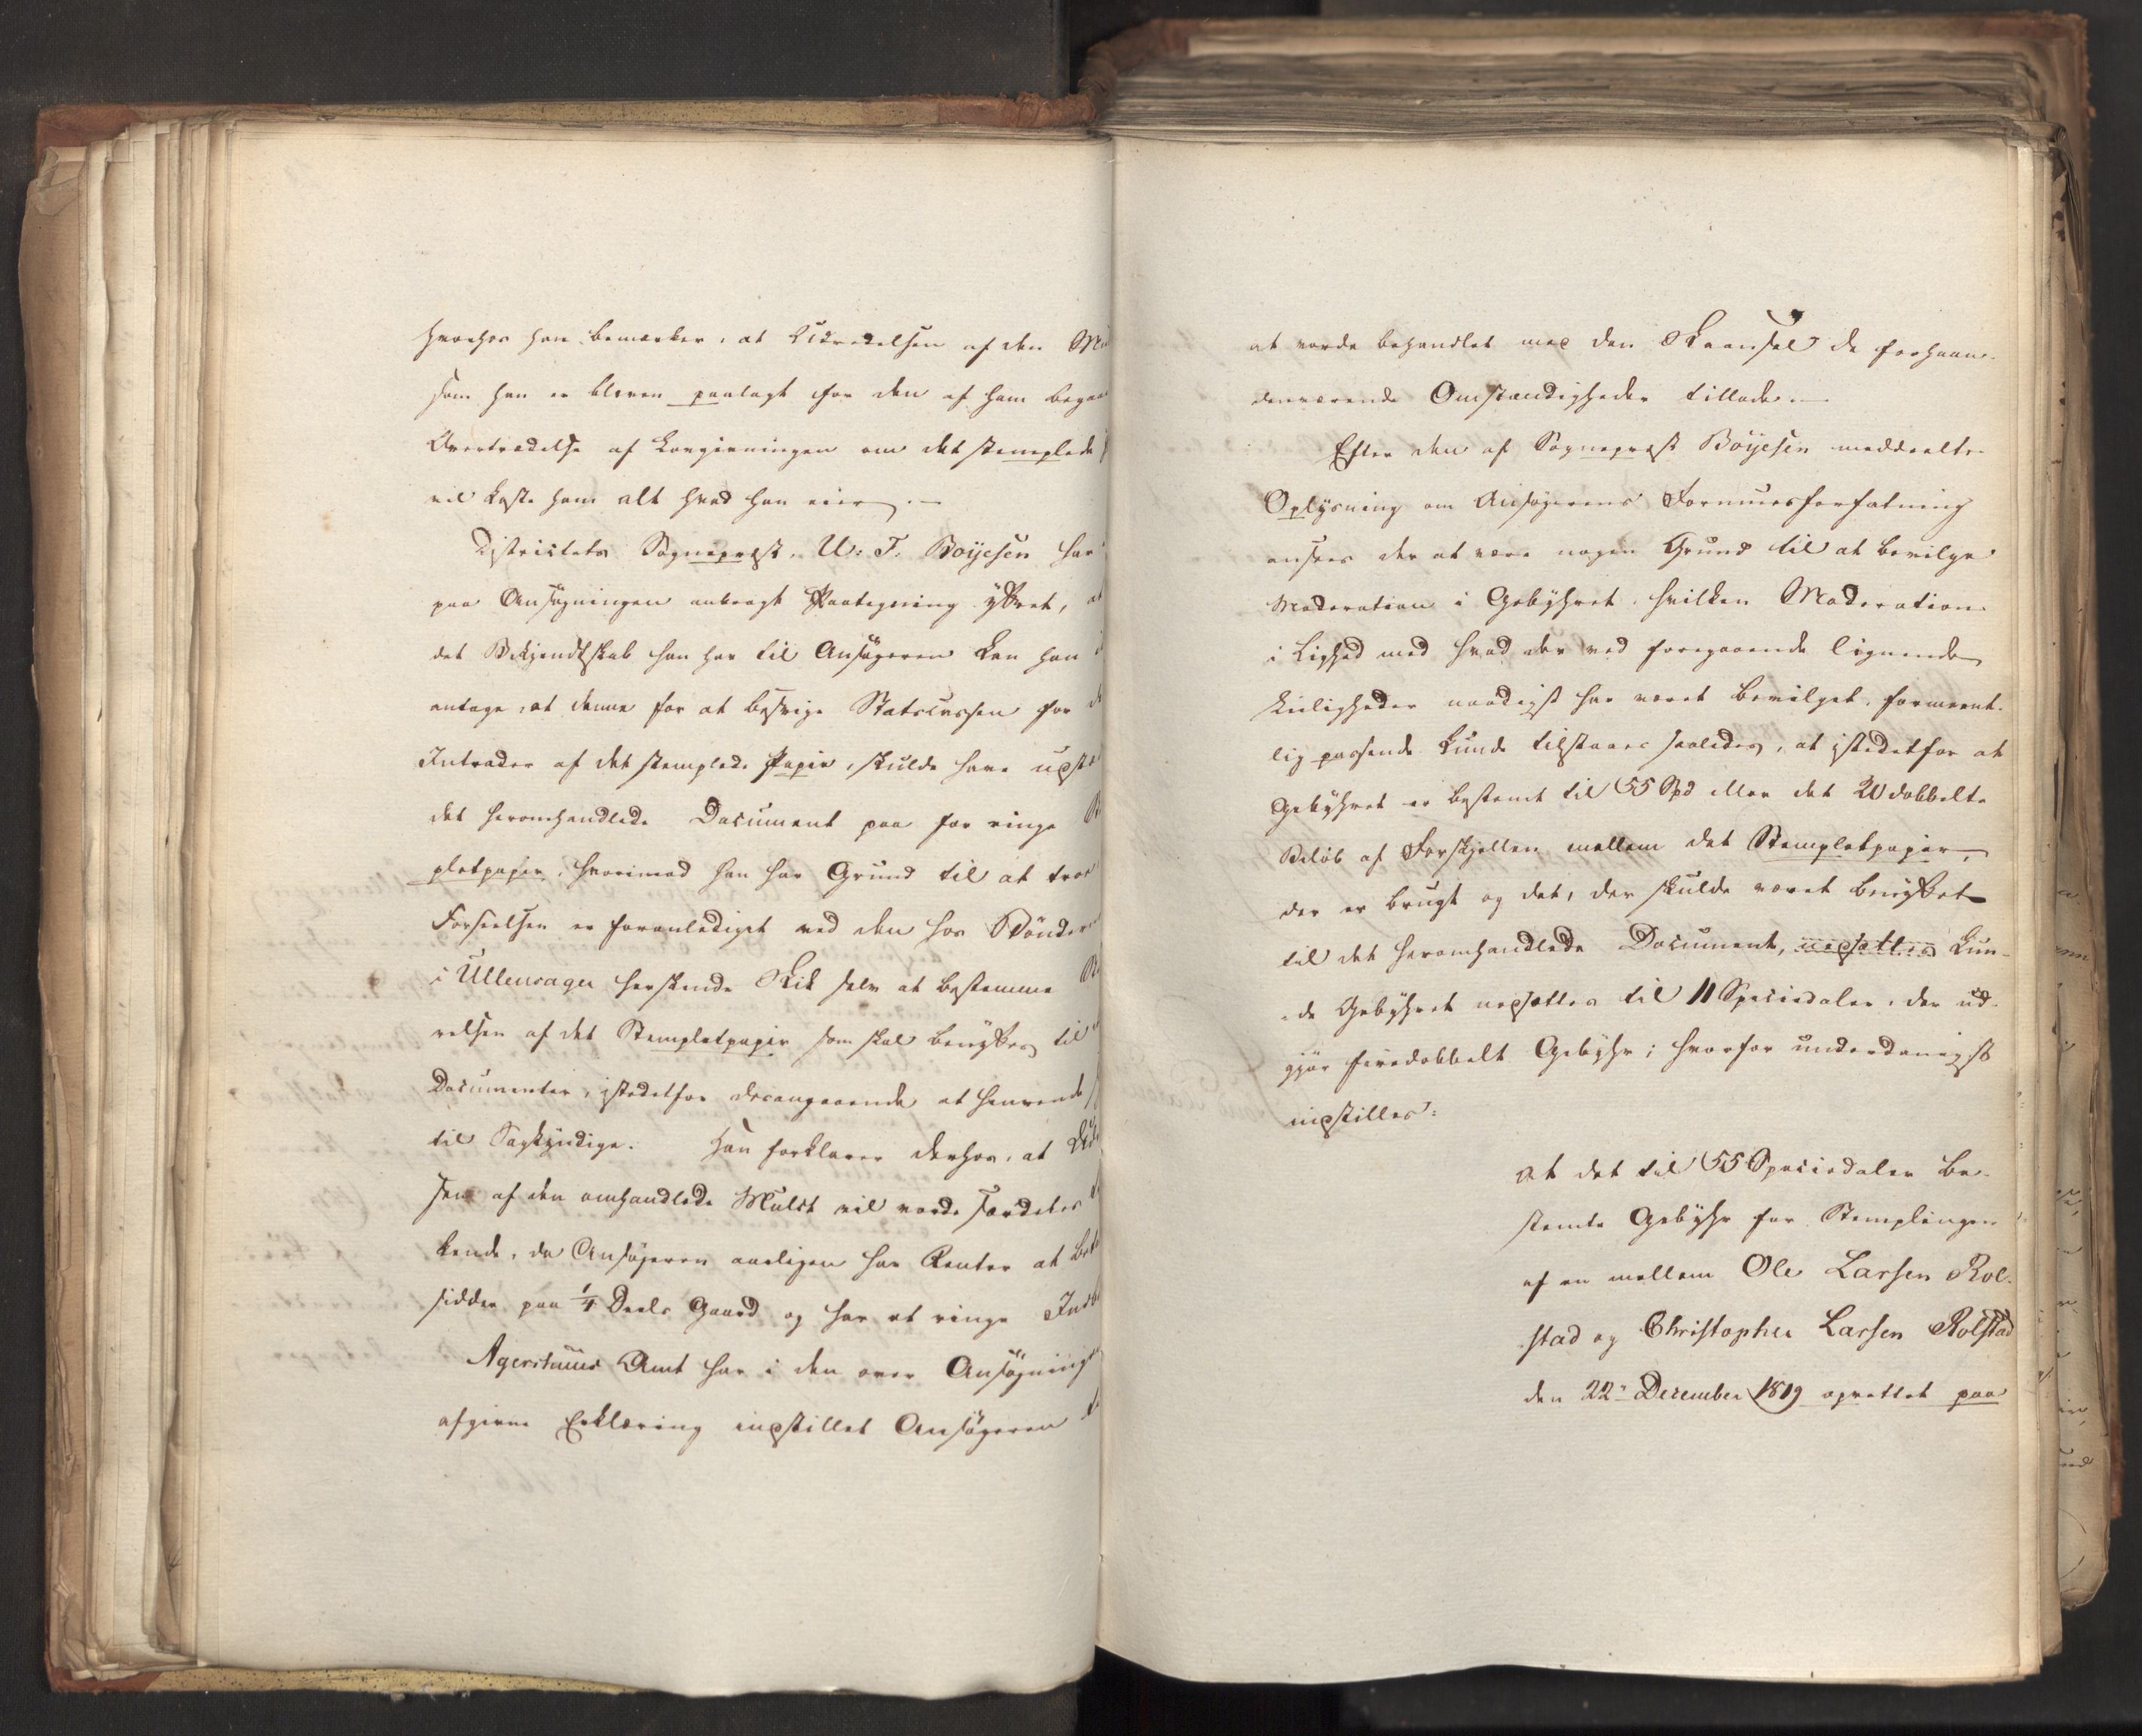 hvorhos han bemærker, at Udredelsen af den Mu
som han er bleven paalagt for den af ham begaa
Overtrædelse af Lovgivningen om det stemplede
vil koste ham alt hvad han eier.—
Districtets Sognepræst, U: F: Böyesen har
paa Ansøgningen anbragt Paategning yttret, at
det Bekjendtskab han har til Ansøgeren kan han
antage, at denne for at besvige Statscassen for
Intrader af det stemplede Papir, skulde have
det heromhandlede Document paa for ringe
pletpapir, hvorimod han har Grund til at troe
Forseelsen er foranlediget ved den hos Bönder
i Ullensager herskende Skik selv at bestemme
relsen af det Stempletpapir som skal benyttes til
Documenter, istedetfor desangaaende at henvende
til Sagkyndige. Han forklarer derhos, at
sen af den omhandlede Mulct vil vorde særdeles
kende, da Ansøgeren aarligen har Renter at
sidder paa 1/4 Deels Gaard og har et ringe
Agershuus Amt har i den over Ansøgning
afgivne Erklæring indstillet Ansøgeren
at vorde behandlet med den Skaansel de forhaan-
denværende Omstændigheder tillade.—
Efter den af Sognepræst Böyesen meddeelte
Oplysning om Ansøgerens Formuesforfatning
ansees der at være nogen Grund til at bevilge
Moderation i Gebyhret, hvilken Moderation
i Lighed med hvad der ved foregaaende lignende
Leiligheder naadigst har været bevilget, formeent-
lig passende kunde tilstaaes saaledes, at istedetfor at
Gebyhret er bestemt til 55 Spd eller det 20 dobbelte
Beløb af Forskjellen mellem det Stempletpapir,
der er brugt og det, der skulde været benyttet
til det heromhandlede Document, nedsættes kun-
de Gebyhret nedsættes til 11 Speciedaler, der ud-
gjør firedobbelt Gebyhr; hvorfor underdanigst
indstilles:
at det til 55 Speciedaler be-
stemte Gebyhr for Stemplingen
af en mellem Ole Larsen Rol-
stad og Christopher Larsen Rolstad
den 22de December 1819 oprettet paa